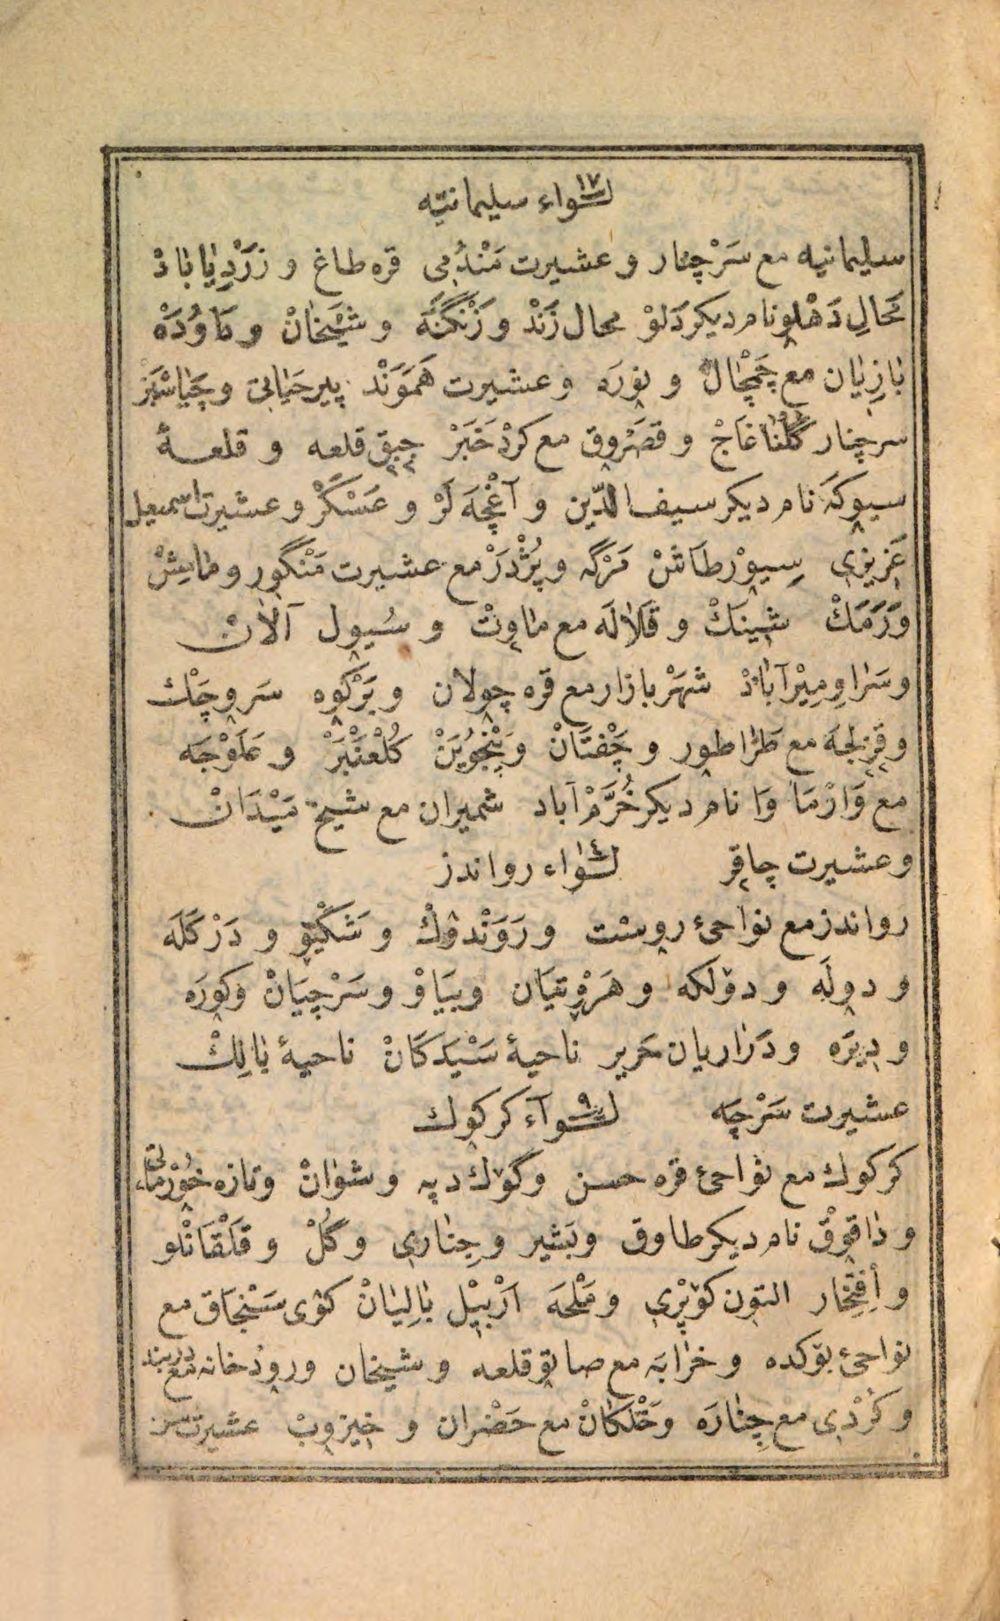 ١٧
لواء سليمانيّه
سليمانيه مع سَرْچنار و عشيرت مَنْدُمى قره طاغ و زَرْدِيَابَادْ
مَحَالِ دَهْلو نام ديكر دَلوْ محال زَنْد و زَنْگنَه و شَيْخَانْ و دَاوُدَهْ
بَازِيَان مع چَمْچَال و بورَه و عشيرت هَمَوَنْد پير حَيَاتى و چَيَاسْپَز
سرچنار گَلْنَاغَاجْ و قصَرْوق مع كردْخَبَرْ جبق قلعه و قلعهٔ
سيوكَه نام ديكر سيف الدّين و آغْچَه لَرْ و عَسْكَرْ و عشيرت اسمعيل
عَزيزى سِيوْرطَاشْ مَرْگه و پُژْدَرْ مع عشيرت مَنْگور و مامِشْ
وَرَمَكْ شينَكْ و قَلَالَه مع مَاوتْ و سُيول آلَانْ
و سَرَاو مِيْرآبَادْ شهَرْبازار مع قره چولان و بَرْكوه سَروچَكْ
و قزلجَه مع طَرَاطور و چَفْتَانْ و پَنْجوُيَنْ گُلْعَنْبَرْ و عَلَوْجَه
مع وَارْمَاوَا نام ديكر خُرَّمْ آباد شميران مع شيخ مَيْدَانْ
و عشيرت چاقر ٤ لواء رواندز
رواندز مع نواحئ روست و رَوَنْدوْكْ و شَكْيو و دَرْگَلَه
و دولَه و دوّلكه و هَرْوتيَان و بيَاوْ و سَرْچيَانْ و كورَه
و ديرَه و دَرَاريان حَرير ناحيهٔ سَيْدَكَانْ ناحيهٔ بَالِكْ
عشيرت سَرْچَه ٩ لوآء كركوك
كركوك مع نواحئ قره حسن و گوْك دپه و شوَانْ و تازه خُوْرماتى
و دَاقوقْ نام ديكر طاوق و بَشير و چِنَارى و گُلْ و قَلْقَانْلو
و أِفتِخَار التون كوْپْرى و مَلْحَه آرْبيْل بَالِيَانْ كوى سَنْجَاق مع
نواحئ بوّكده و خرَابَه مع صاتو قلعه و شيخان و رودُخانه مع دربند
و كُرْدى مع چِنَارَه و خَتْلكَانْ مع حَضْران و خيزوبْ عشيرت